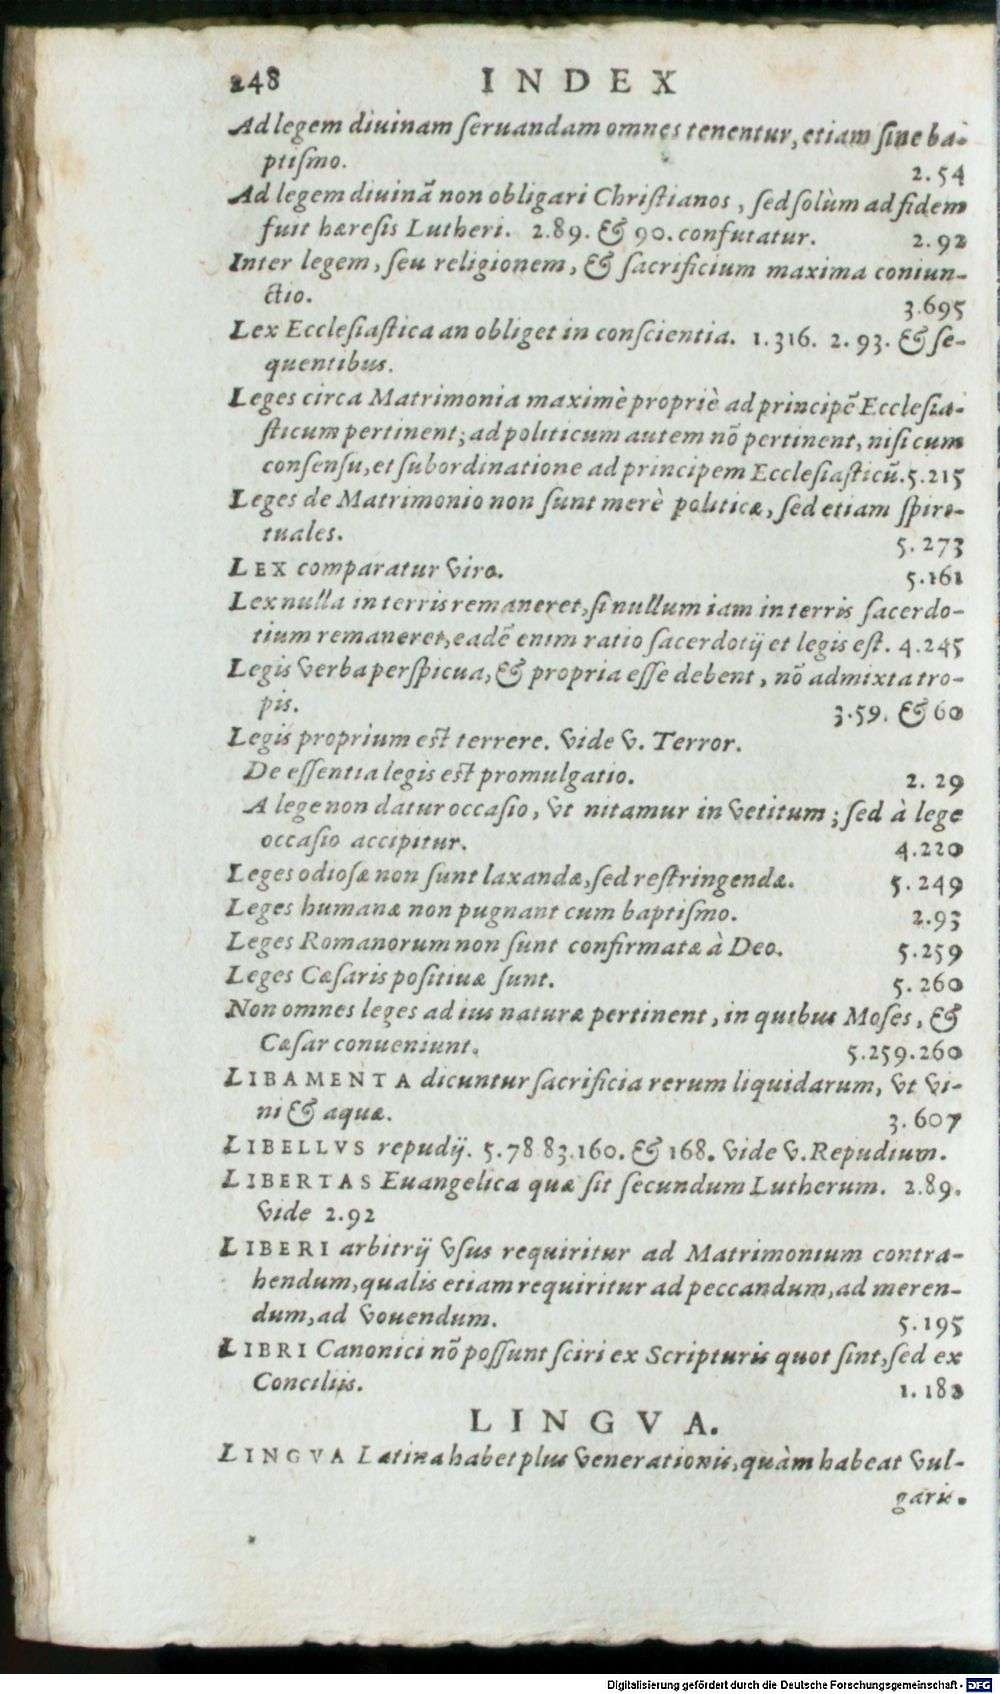 248 INDEX
Ad legem diuinam ſeruandam omnes tenentur, etiam ſine ba-
ptiſmo. 2.54
Ad legem diuinã non obligari Chriſtianos, ſed ſolùm ad fidem
fuit hæreſis Lutheri. 2.89. & 90. confutatur. 2.92
Inter legem, ſeu religionem, & ſacrificium maxima coniun-
ctio. 3.695
Lex Eccleſiaſtica an obliget in conſcientia. 1.316. 2.93. & ſe-
quentibus.
Leges circa Matrimonia maximè propriè ad principẽ Eccleſia-
ſticum pertinent; ad politicum autem nõ pertinent, niſi cum
conſenſu, et ſubordinatione ad principem Eccleſiaſticũ. 5.215
Leges de Matrimonio non ſunt merè politicæ, ſed etiam ſpiri-
tuales. 5.273
LEX comparatur viro. 5.161
Lex nulla in terris remaneret, ſi nullum iam in terris ſacerdo-
tium remaneret, eadẽ enim ratio ſacerdotij et legis eſt. 4.245
Legis verba perſpicua, & propria eſſe debent, nõ admixta tro-
pis. 3.59. & 60
Legis proprium eſt terrere. vide v. Terror.
De eſſentia legis eſt promulgatio. 2.29
A lege non datur occaſio, vt nitamur in vetitum; ſed à lege
occaſio accipitur. 4.220
Leges odioſæ non ſunt laxandæ, ſed reſtringendæ. 5.249
Leges humanæ non pugnant cum baptiſmo. 2.93
Leges Romanorum non ſunt confirmatæ à Deo. 5.259
Leges Cæſaris poſitiuæ ſunt. 5.260
Non omnes leges ad ius naturæ pertinent, in quibus Moſes, &
Cæſar conueniunt. 5.259.260
LIBAMENTA dicuntur ſacrificia rerum liquidarum, vt vi-
ni & aquæ. 3.607
LIBELLVS repudij. 5.78 83.160. & 168. vide v. Repudium.
LIBERTAS Euangelica quæ ſit ſecundum Lutherum. 2.89.
vide 2.92
LIBERI arbitrij vſus requiritur ad Matrimonium contra-
hendum, qualis etiam requiritur ad peccandum, ad meren-
dum, ad vouendum. 5.195
LIBRI Canonici nõ poſſunt ſciri ex Scripturis quot ſint, ſed ex
Conciliis. 1.182
LINGVA.
LINGVA Latina habet plus venerationis, quàm habeat vul-
garis.
Digitalisierung gefördert durch die Deutsche Forschungsgemeinschaft - DFG